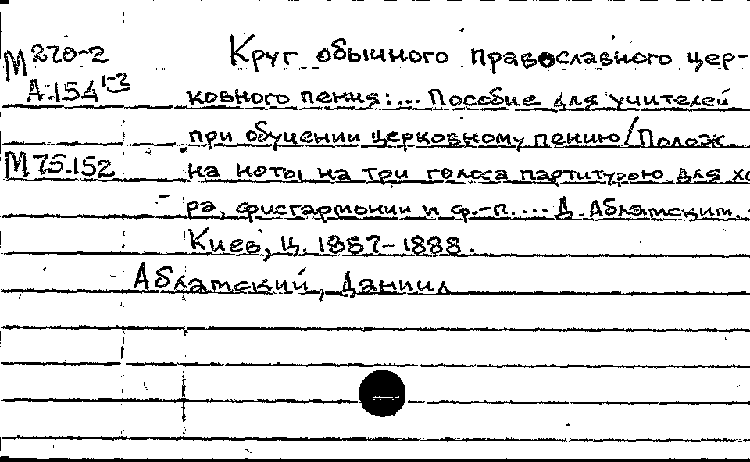 М 270-2 Круг обычного православного цер-
А.154 1-3 ковного пения:... Пособие для учителей
при обучении церковному пению/Полож
М 75.152 на ноты на три голоса партитурою для хо
ра, фисгармонии и ф.-п.... Д. Аблямским.
Киев, ц. 1887-1888.
Аблямский, Даниил